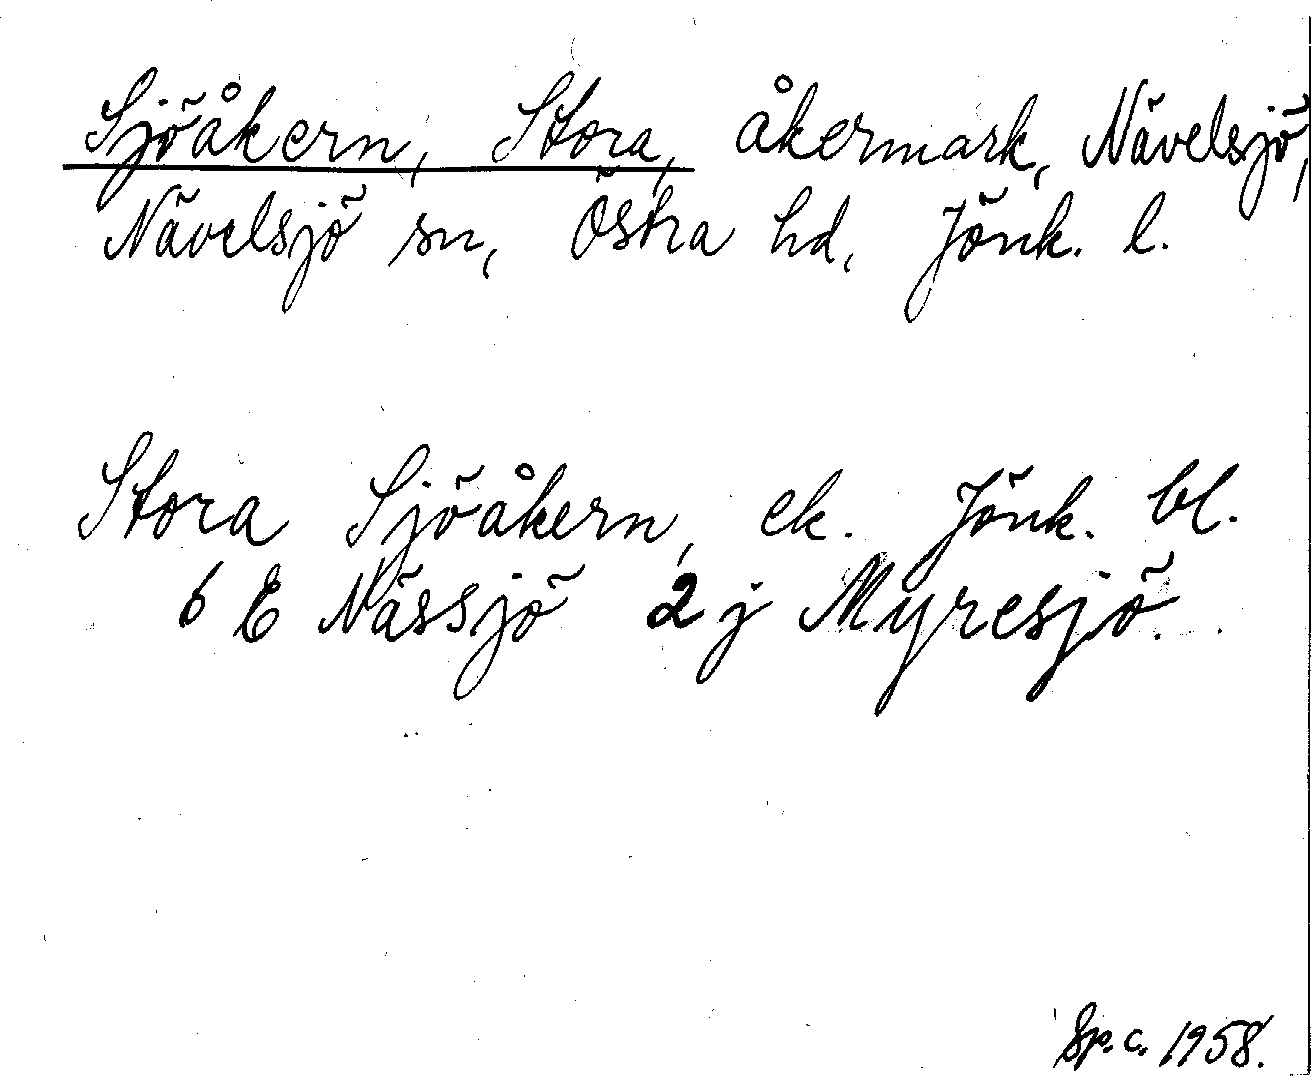 Sjöåkern, Stora, åkermark, Nävelsjö,
Nävelsjö sn, Östra hd, Jönk. l.
Stora Sjöåkern, ek. Jönk. bl.
6 E Nässjö 2 j Myresjö.
Sp.c. 1958.